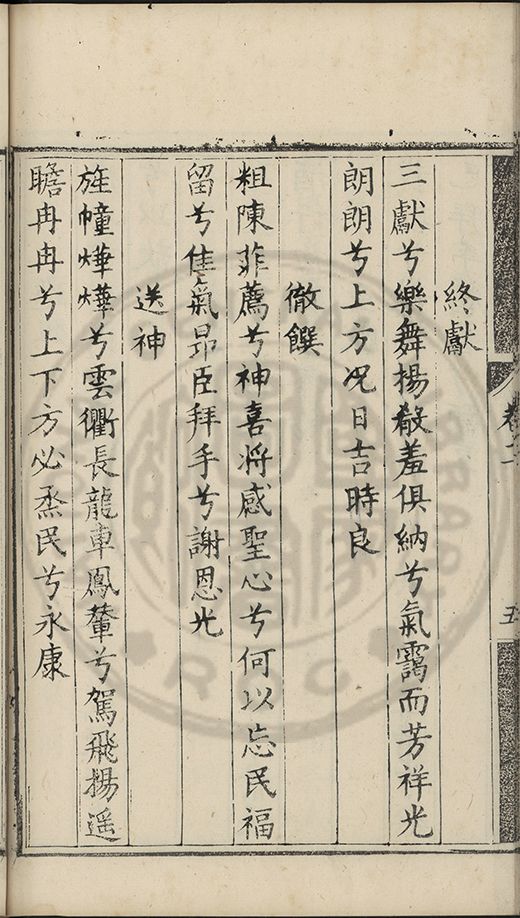 終獻
三獻兮樂舞揚殽羞俱納兮氣靄而芳祥光
朗朗兮上方况日吉時良
徹饌
粗陳菲薦兮神喜將感聖心兮何以忘民福
留兮佳氣昻臣拜手兮謝恩光
送神
旌幢燁燁兮雲衢長龍車鳳輦兮駕飛揚遥
瞻冉冉兮上下方必烝民兮永康
卷二
五